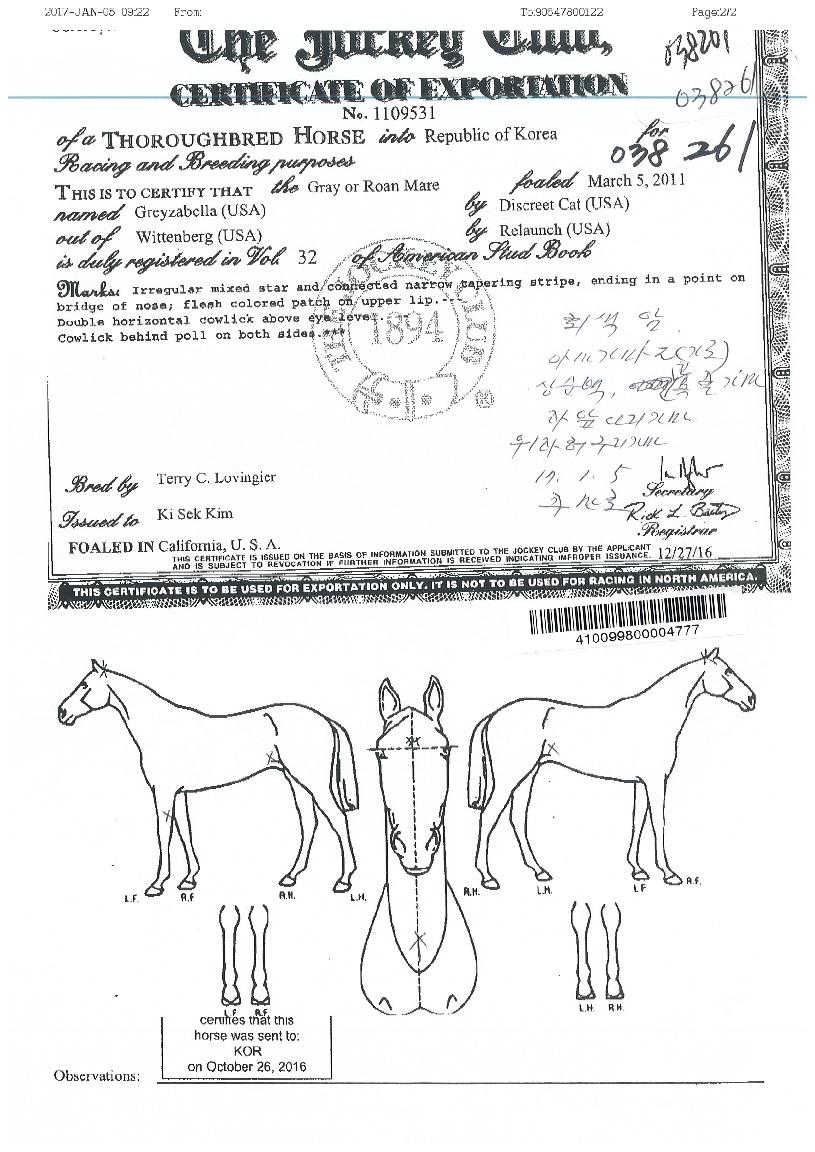 2017-JAN-05 09:22 From: To:90547800122 Page:2/2
The Jockey Club,
038201
03826/
CERTIFICATE OF EXPORTATION
No. 1109531
of a THOROUGHBRED HORSE into Republic of Korea
for
038 261
Racing and Breeding purposes
THIS IS TO CERTIFY THAT the Gray or Roan Mare foaled March 5, 2011
named Greyzabella (USA) by Discreet Cat (USA)
out of Wittenberg (USA) by Relaunch (USA)
is duly registered in Vol. 32 of American Stud Book
Marks: Irregular mixed star and connected narrow tapering stripe, ending in a point on
bridge of nose; flesh colored patch on upper lip.--
Double horizontal cowlick above eye level.
Cowlick behind poll on both sides.***
THE JOCKEY CLUB
1894
®
회색 암
17. 1. 5
Bred by Terry C. Lovingier
Secretary
Issued to Ki Sek Kim
Rick L. Bailey
Registrar
FOALED IN California, U. S. A.
THIS CERTIFICATE IS ISSUED ON THE BASIS OF INFORMATION SUBMITTED TO THE JOCKEY CLUB BY THE APPLICANT
AND IS SUBJECT TO REVOCATION IF FURTHER INFORMATION IS RECEIVED INDICATING IMPROPER ISSUANCE. 12/27/16
THIS CERTIFICATE IS TO BE USED FOR EXPORTATION ONLY. IT IS NOT TO BE USED FOR RACING IN NORTH AMERICA.
410099800004777
L.F. R.F R.H. L.H. R.H. L.H. L.F R.F.
L.F R.F. L.H. R.H.
certifies that this
horse was sent to:
KOR
on October 26, 2016
Observations: